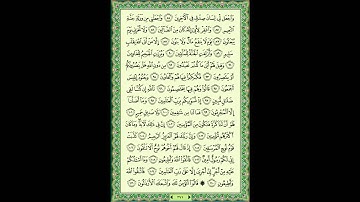 وَاجْعَل لِّي لِسَانَ صِدْقٍ فِي الْآخِرِينَ ٨٤ وَاجْعَلْنِي مِن وَرَثَةِ جَنَّةِ
النَّعِيمِ ٨٥ وَاغْفِرْ لِأَبِي إِنَّهُ كَانَ مِنَ الضَّالِّينَ ٨٦ وَلَا تُخْزِنِي يَوْمَ
يُبْعَثُونَ ٨٧ يَوْمَ لَا يَنفَعُ مَالٌ وَلَا بَنُونَ ٨٨ إِلَّا مَنْ أَتَى اللَّهَ بِقَلْبٍ
سَلِيمٍ ٨٩ وَأُزْلِفَتِ الْجَنَّةُ لِلْمُتَّقِينَ ٩٠ وَبُرِّزَتِ الْجَحِيمُ لِلْغَاوِينَ ٩١
وَقِيلَ لَهُمْ أَيْنَ مَا كُنتُمْ تَعْبُدُونَ ٩٢ مِن دُونِ اللَّهِ هَلْ يَنصُرُونَكُمْ
أَوْ يَنتَصِرُونَ ٩٣ فَكُبْكِبُوا فِيهَا هُمْ وَالْغَاوُونَ ٩٤ وَجُنُودُ إِبْلِيسَ
أَجْمَعُونَ ٩٥ قَالُوا وَهُمْ فِيهَا يَخْتَصِمُونَ ٩٦ تَاللَّهِ إِن كُنَّا لَفِي
ضَلَالٍ مُّبِينٍ ٩٧ إِذْ نُسَوِّيكُم بِرَبِّ الْعَالَمِينَ ٩٨ وَمَا أَضَلَّنَا
إِلَّا الْمُجْرِمُونَ ٩٩ فَمَا لَنَا مِن شَافِعِينَ ١٠٠ وَلَا صَدِيقٍ حَمِيمٍ ١٠١
فَلَوْ أَنَّ لَنَا كَرَّةً فَنَكُونَ مِنَ الْمُؤْمِنِينَ ١٠٢ إِنَّ فِي ذَٰلِكَ لَآيَةً وَمَا كَانَ
أَكْثَرُهُم مُّؤْمِنِينَ ١٠٣ وَإِنَّ رَبَّكَ لَهُوَ الْعَزِيزُ الرَّحِيمُ ١٠٤ كَذَّبَتْ
قَوْمُ نُوحٍ الْمُرْسَلِينَ ١٠٥ إِذْ قَالَ لَهُمْ أَخُوهُمْ نُوحٌ أَلَا تَتَّقُونَ ١٠٦
إِنِّي لَكُمْ رَسُولٌ أَمِينٌ ١٠٧ فَاتَّقُوا اللَّهَ وَأَطِيعُونِ ١٠٨ وَمَا أَسْأَلُكُمْ
عَلَيْهِ مِنْ أَجْرٍ إِنْ أَجْرِيَ إِلَّا عَلَىٰ رَبِّ الْعَالَمِينَ ١٠٩ فَاتَّقُوا اللَّهَ
وَأَطِيعُونِ ١١٠ ۞ قَالُوا أَنُؤْمِنُ لَكَ وَاتَّبَعَكَ الْأَرْذَلُونَ ١١١
٣٧١